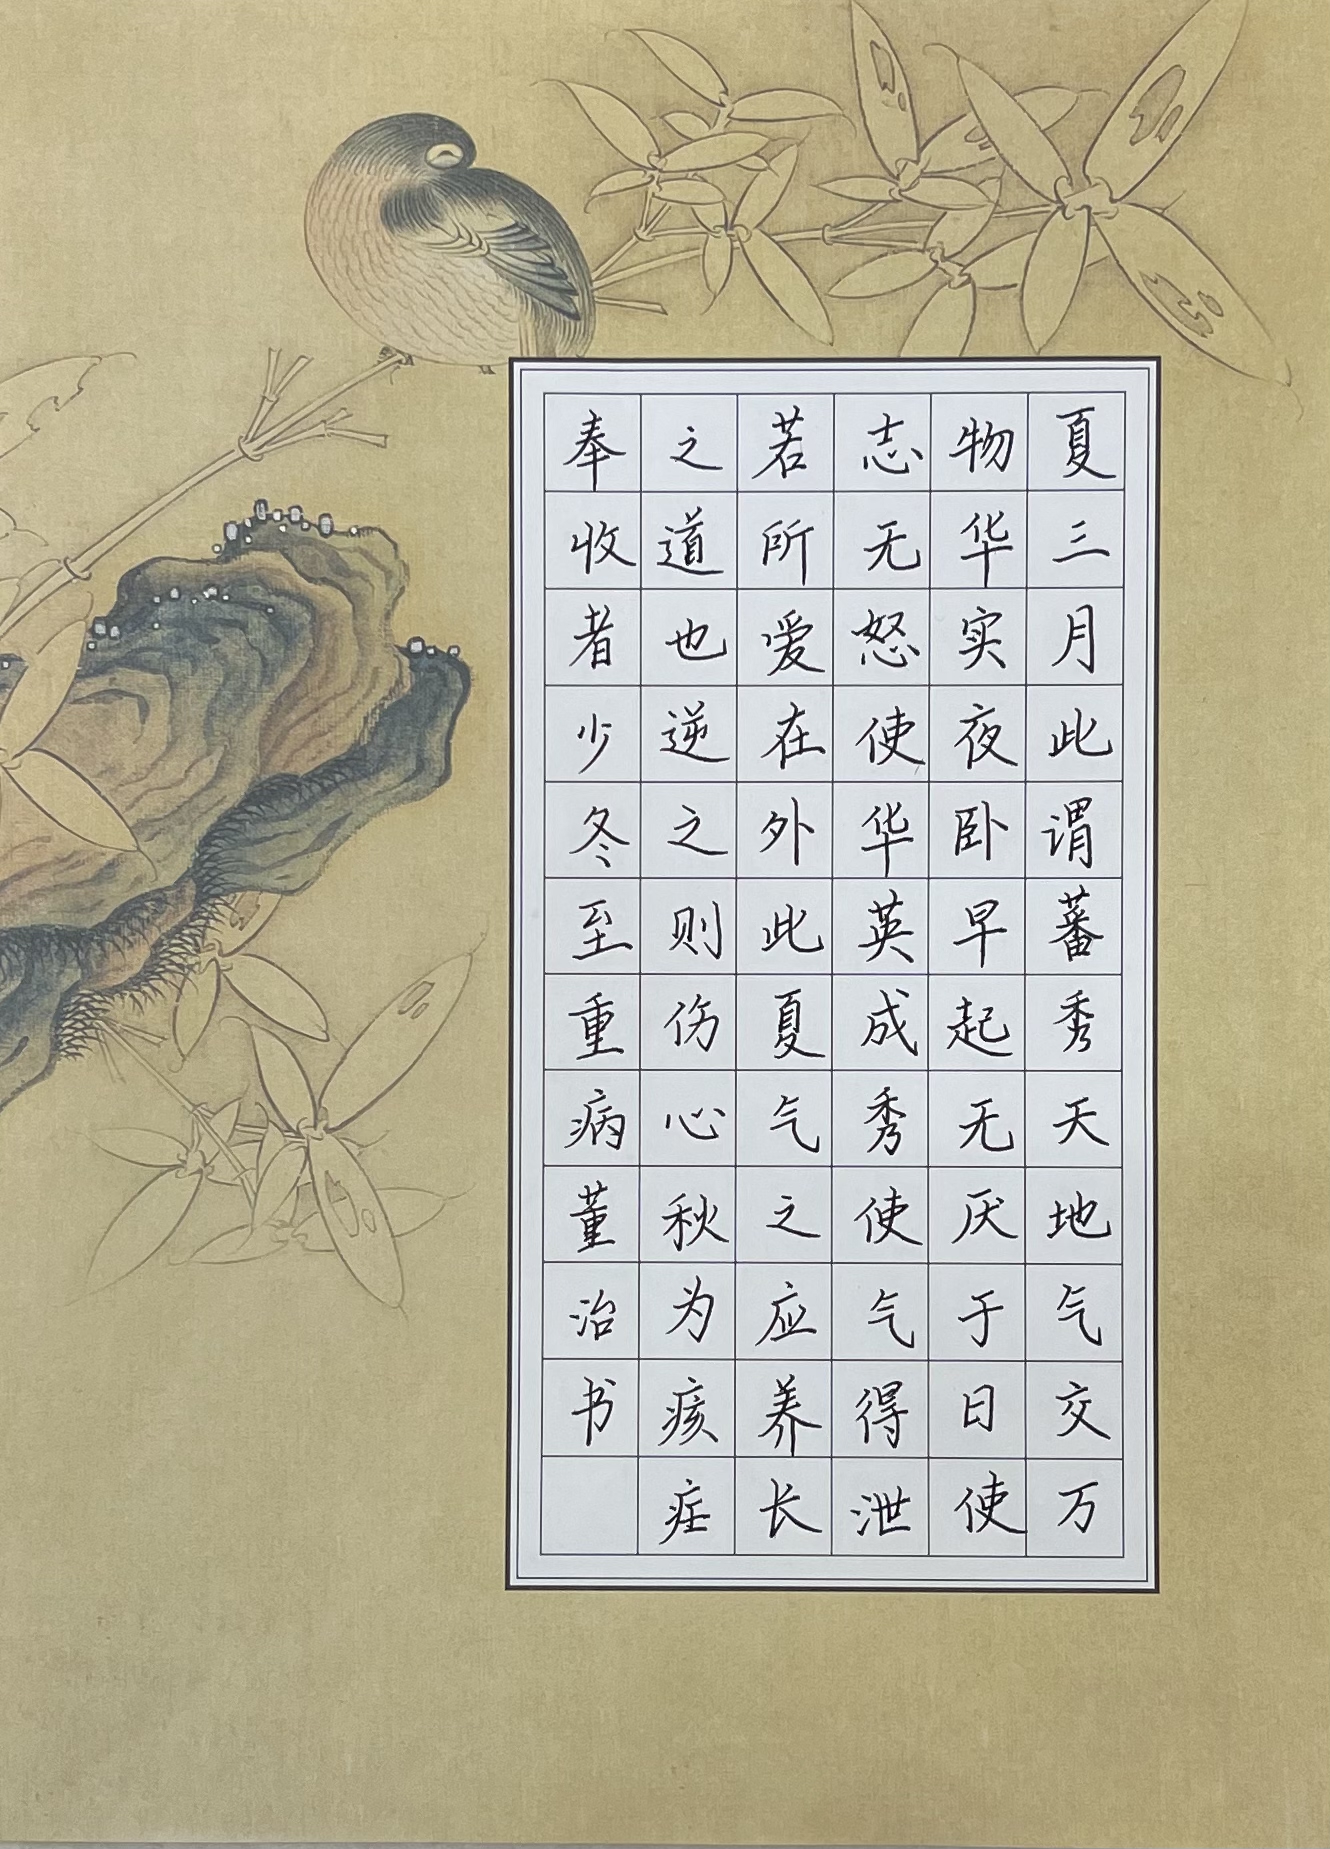 夏三月此谓蕃秀天地气交万
物华实夜卧早起无厌于日使
志无怒使华英成秀使气得泄
若所爱在外此夏气之应养长
之道也逆之则伤心秋为痎疟
奉收者少冬至重病董治书